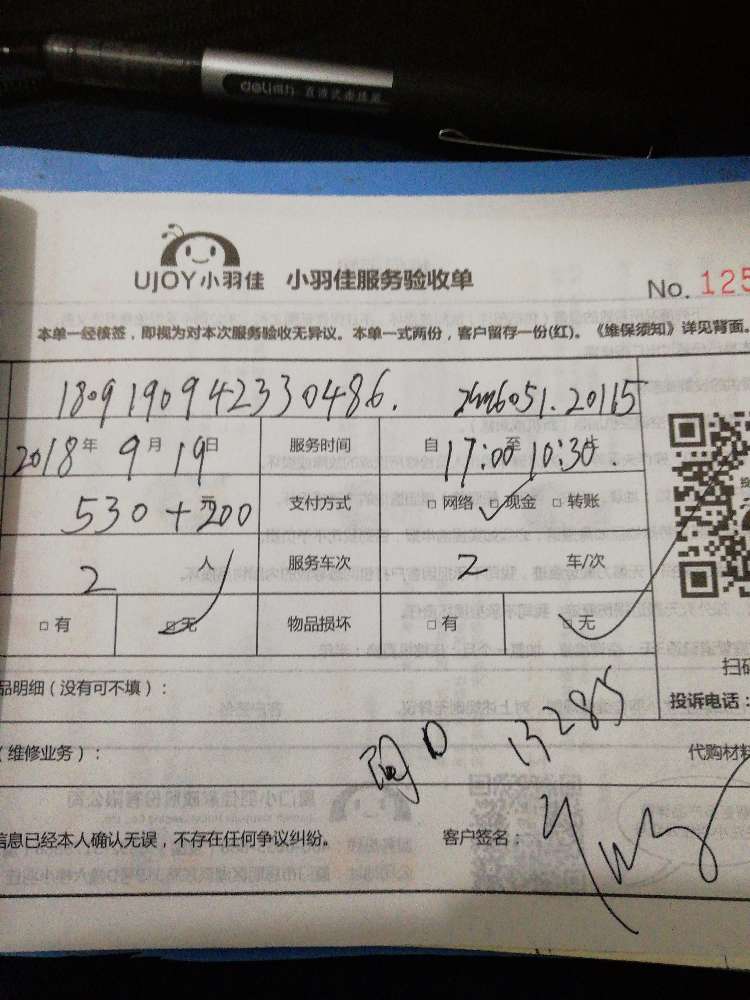 deli
UJOY小羽佳 小羽佳服务验收单
No. 125
本单一经核签，即视为对本次服务验收无异议。本单一式两份，客户留存一份(红)。《维保须知》详见背面。
180919094233 0486.
2018年9月19日 服务时间 自17:00至10:30
530+200元 支付方式 □网络 □现金 □转账
2人 服务车次 2 车/次
□有 □无 物品损坏 □有 □无
扫码
品明细（没有可不填）： 投诉电话：
（维修业务）： 闽D 代购材料
信息已经本人确认无误，不存在任何争议纠纷。 客户签名：